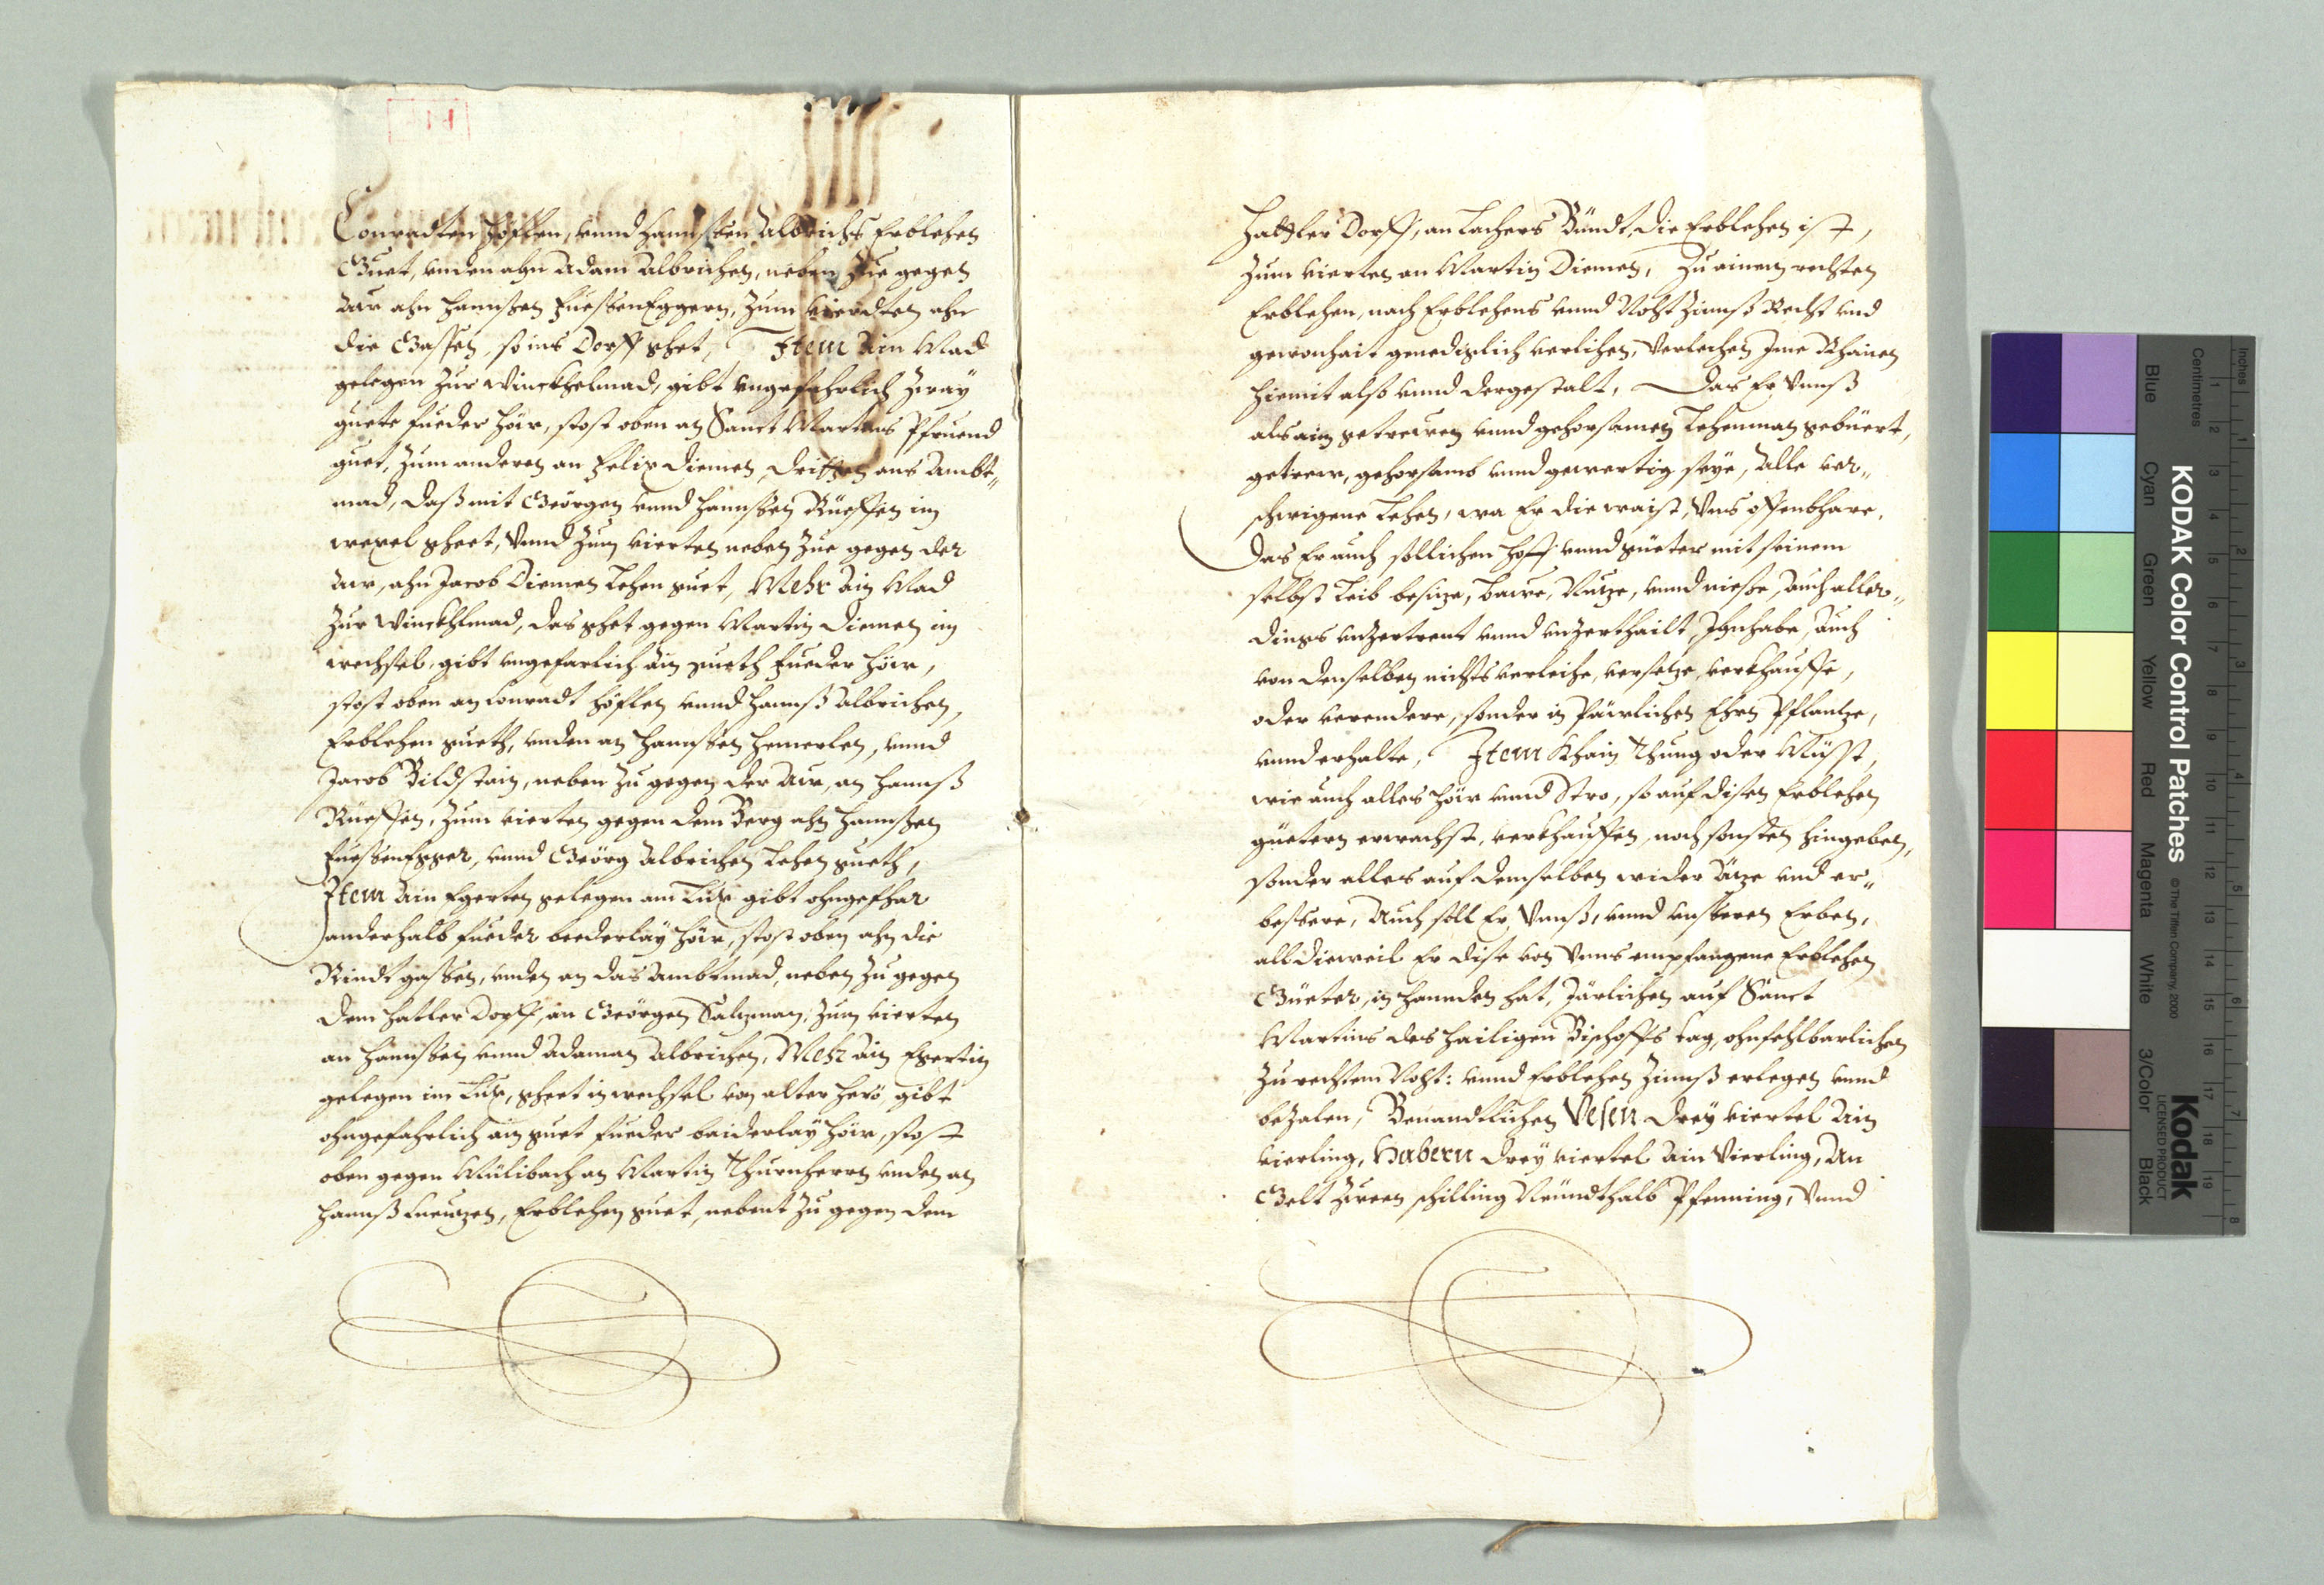 Conradten Höflen, unnd Hannßen Albrichs Erblehen
Guet, unden ahn Adam Albrichen, neben Zue gegen
Aur ahn Hannßen FueßenEggern, Zum vierdten ahn
die Gassen, so ins Dorff ghet, Item Ain Mad
gelegen Zur Winckhelmad, gibt ungefahrlich Zway
guete Fueder Höw, stost oben an Sanct Martins Pfruend
guet, Zum anderen an Felix Diemen, dritten ans Ambt„
mad, daß mit Geörgen unnd Hannßen Rüeffen im
wexel gheet, Unnd Zum vierten neben Zue gegen der
Aur, ahn Jacob Diemen Lehen guet, Mehr Ain Mad
Zur Winckhlmad, das ghet gegen Martin Diemen im
wechsel, gibt ungefarlich ain gueth Fueder Höw,
stost oben an Conradt Höflen unnd Hannß Albrichen,
Erblehen gueth, unden an Hannßen Hemerlen, unnd
Jacob Bildstain, neben Zu gegen der Aur, an Hannß
Rüeffen, Zum vierten gegen dem Berg ahn Hannßen
FueßenEgger, unnd Geörg Albrichen Lehen gueth,
Item Ain Egerten gelegen am Lux gibt ohngefhar
anderhalb Fueder beederlay Höw, stost oben ahn die
Rindtgassen, unden an das Ambtmad, neben Zu gegen
dem Hatler Dorff, an Geörgen Saltzman, Zum vierten
an Hannßen unnd Adaman Albrichen, Mehr ain Egerten
gelegen im Lux, gheet in wechsel von alter herö gibt
ohngefahrlich ain guet Fueder baiderlay Höw, stost
oben gegen Mülibach an Martin Thurnherrn unden an
Hannß Luentzen, Erblehen guet, nebent Zu gegen dem
Hattler Dorff, an Lachers Bündt, die Erblehen ist,
Zum vierten an Martin Diemen, Zu ainem rechten
Erblehen, nach Erblehens unnd Noht Zinnß Recht und
gewonhait genediglich verlihen, Verleihen Ime Rhainen
hiemit also unnd dergestalt, Das Er Unnß
als ain getrewen unnd gehorsamen Lehenman gebüert,
getrew, gehorsamb unnd gewertig seye, Alle ver„
schwigene Lehen, wa Er die waist, Uns offenbhare,
Das Er auch sollichen Hoff unnd güeter mit seinem
selbst Leib besitze, Bawe, Nutze, unnd niesse, auch aller„
dings unzertrent unnd unzerthailt, Ihnhabe, auch
von denselben nichts verleihe, versetze, verkhauffe,
oder verendere, sonder in Päwlichen Ehrn Pflantze,
unnd erhalte, Item Khain Thung oder Müsst,
wie auch alles Höw unnd Stro, so auf disen Erblehen
güetern erwachst, verkhauffen, noch sonsten hingeben,
sonder alles auf demselben wider Ätze und er„
bessere, Auch soll Er, Unnß, unnd unseren Erben,
alldieweil Er dise von Unns empfangene Erblehen
Güeter, in Hannden hat, Järlichen auf Sanct
Martins des Hailigen Bischoffs tag, ohnfehlbarlichen
Zu rechtem Noht: unnd Erblehen Zinnß erlegen unnd
bezalen, Benandtlichen Vesen drey viertel Ain
vierling, Habern drey viertel Ain Vierling, An
Gelt Zween schilling Neündthalb Pfenning, Unnd
KODAK Color Control Patches
© The Tiffen Company, 2000
Kodak
LICENSED PRODUCT
Blue Cyan Green Yellow Red Magenta White 3/Color Black
Inches
1 2 3 4 5 6 7 8
Centimetres
1 2 3 4 5 6 7 8 9 10 11 12 13 14 15 16 17 18 19